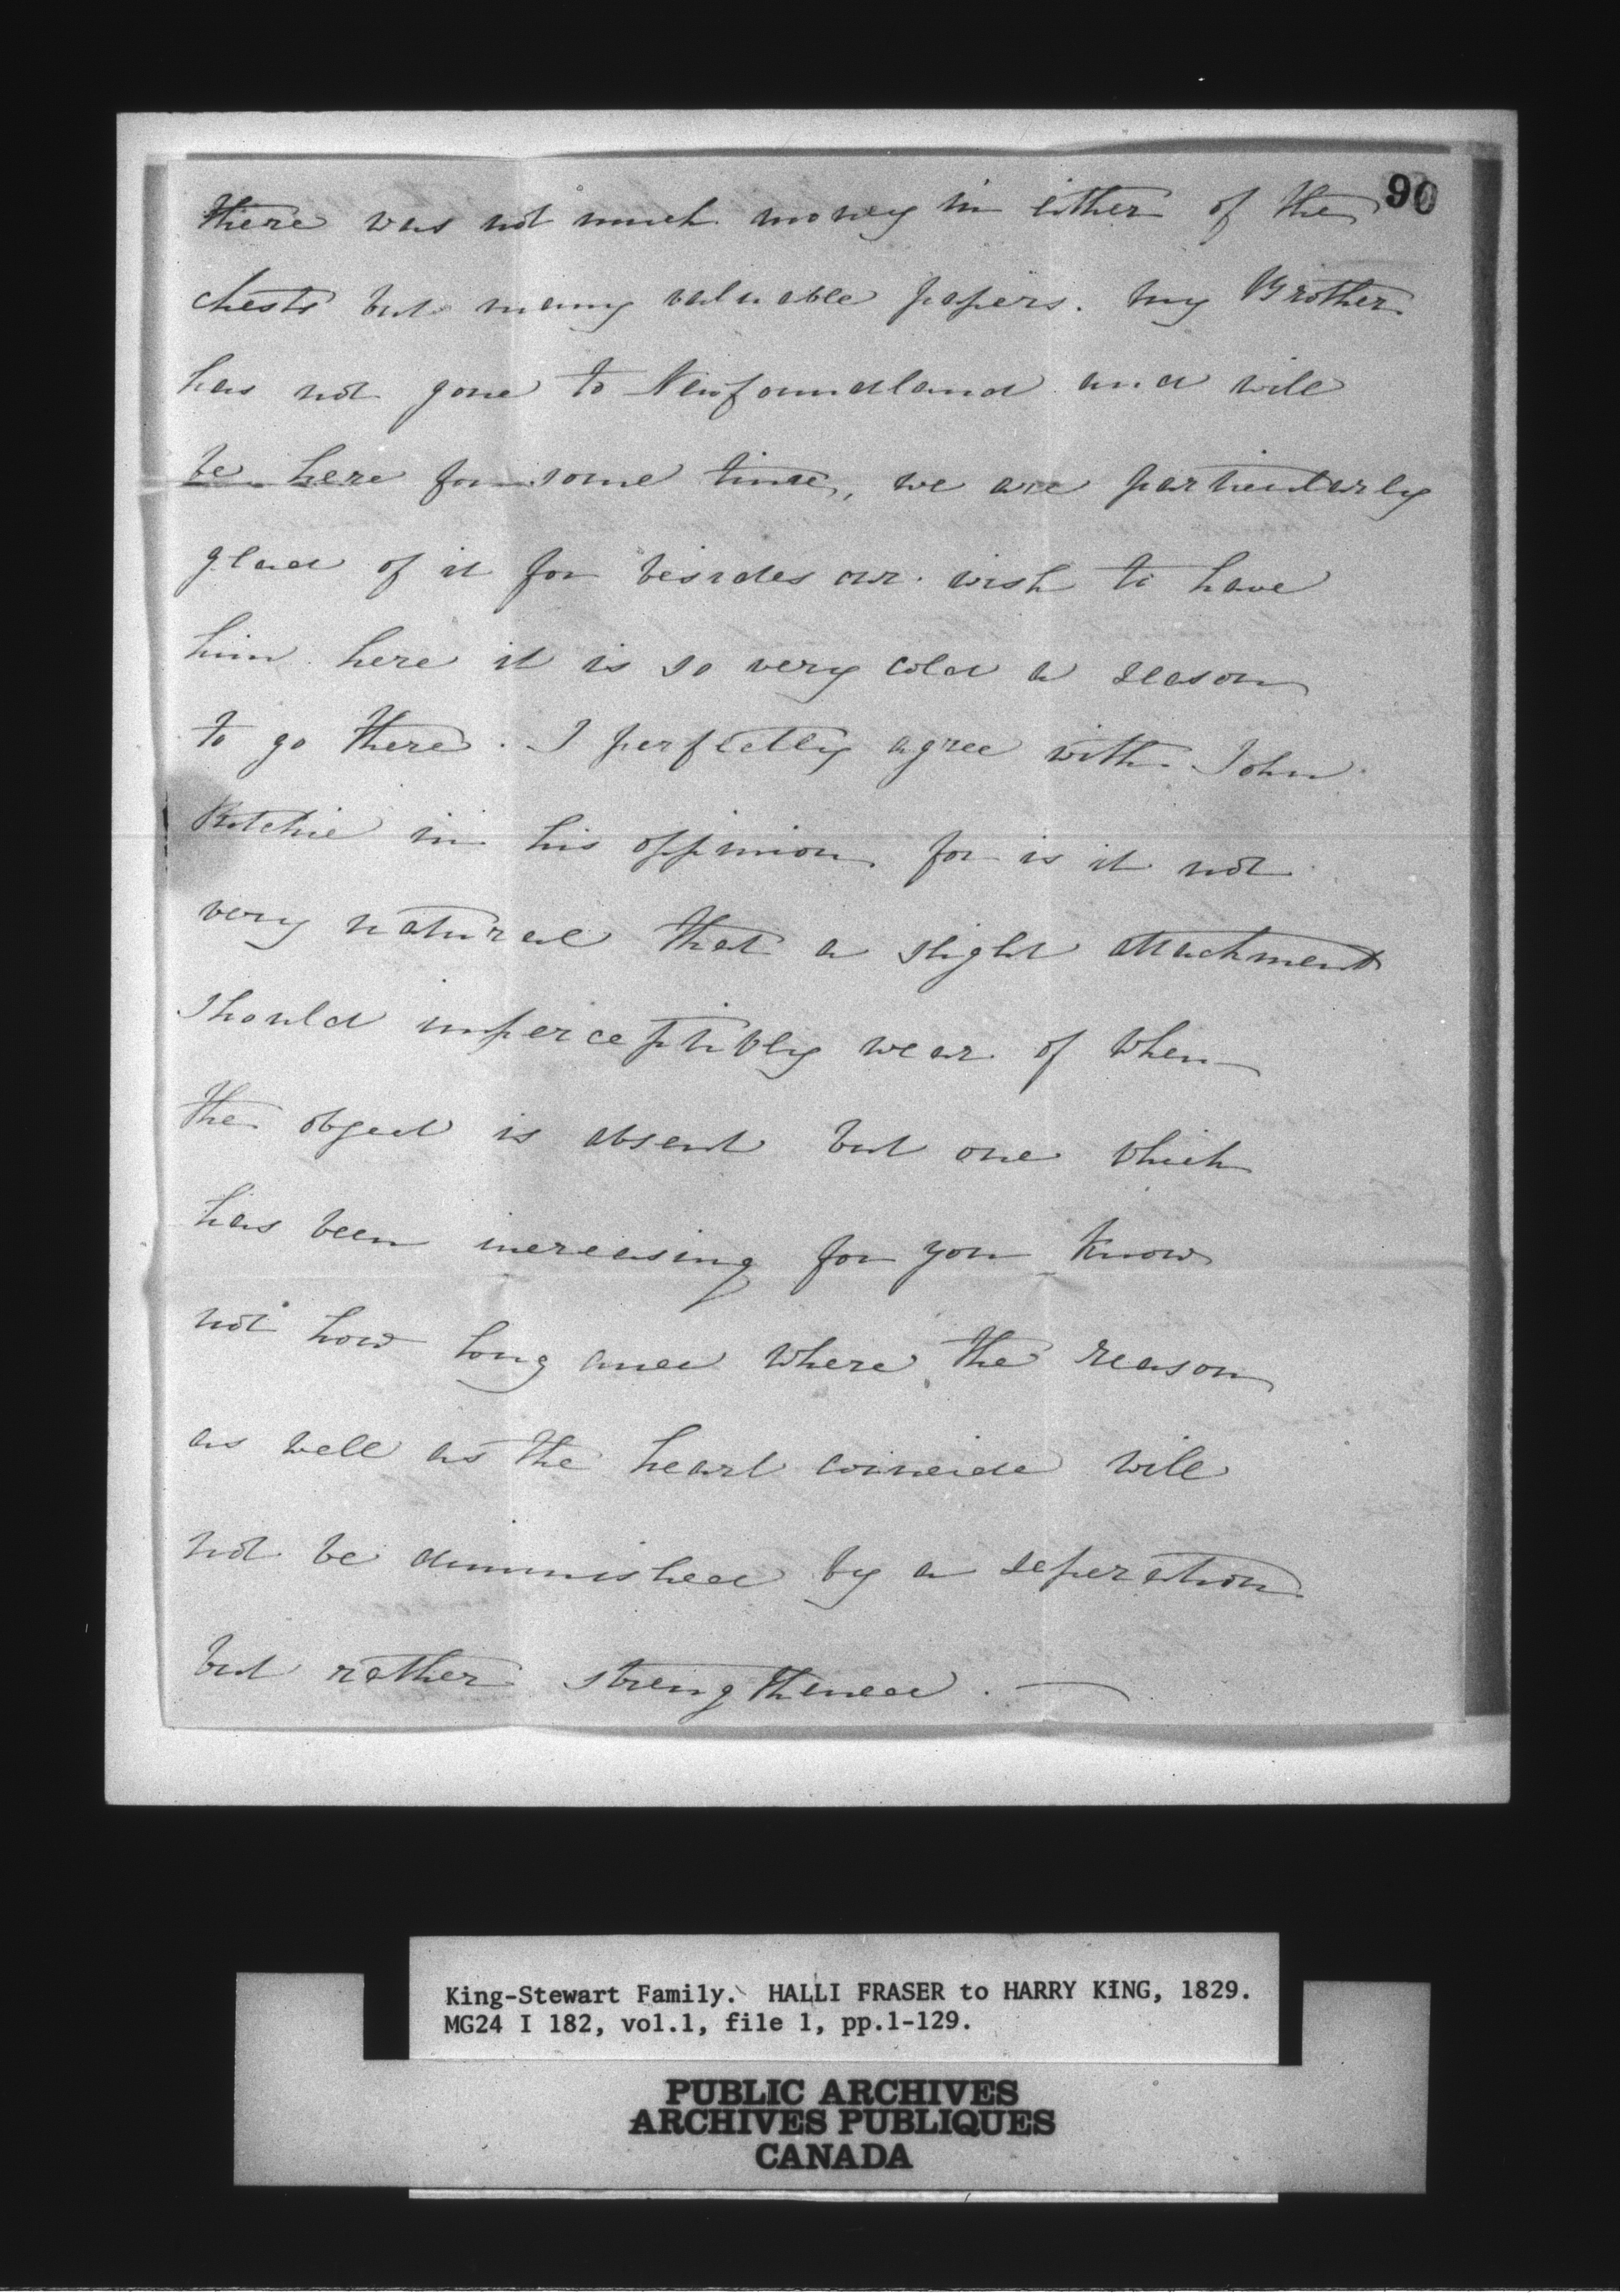 90
there was not much money in either of the
chests but many valuable papers. my Brother
has not gone to Newfoundland and will
be here for some time, we are particularly
glad of it for besides our wish to have
him here it is so very cold a season
to go there. I perfectly agree with John
Ritchie in his oppinion for is it not
very natural that a slight attachment
should imperceptibly wear of when
the object is absent but one which
has been increasing for you know
not how long and where the reason
as well as the heart coincide will
not be diminished by a seperation
but rather strengthened. —
King-Stewart Family. HALLI FRASER to HARRY KING, 1829.
MG24 I 182, vol.1, file 1, pp.1-129.
PUBLIC ARCHIVES
ARCHIVES PUBLIQUES
CANADA